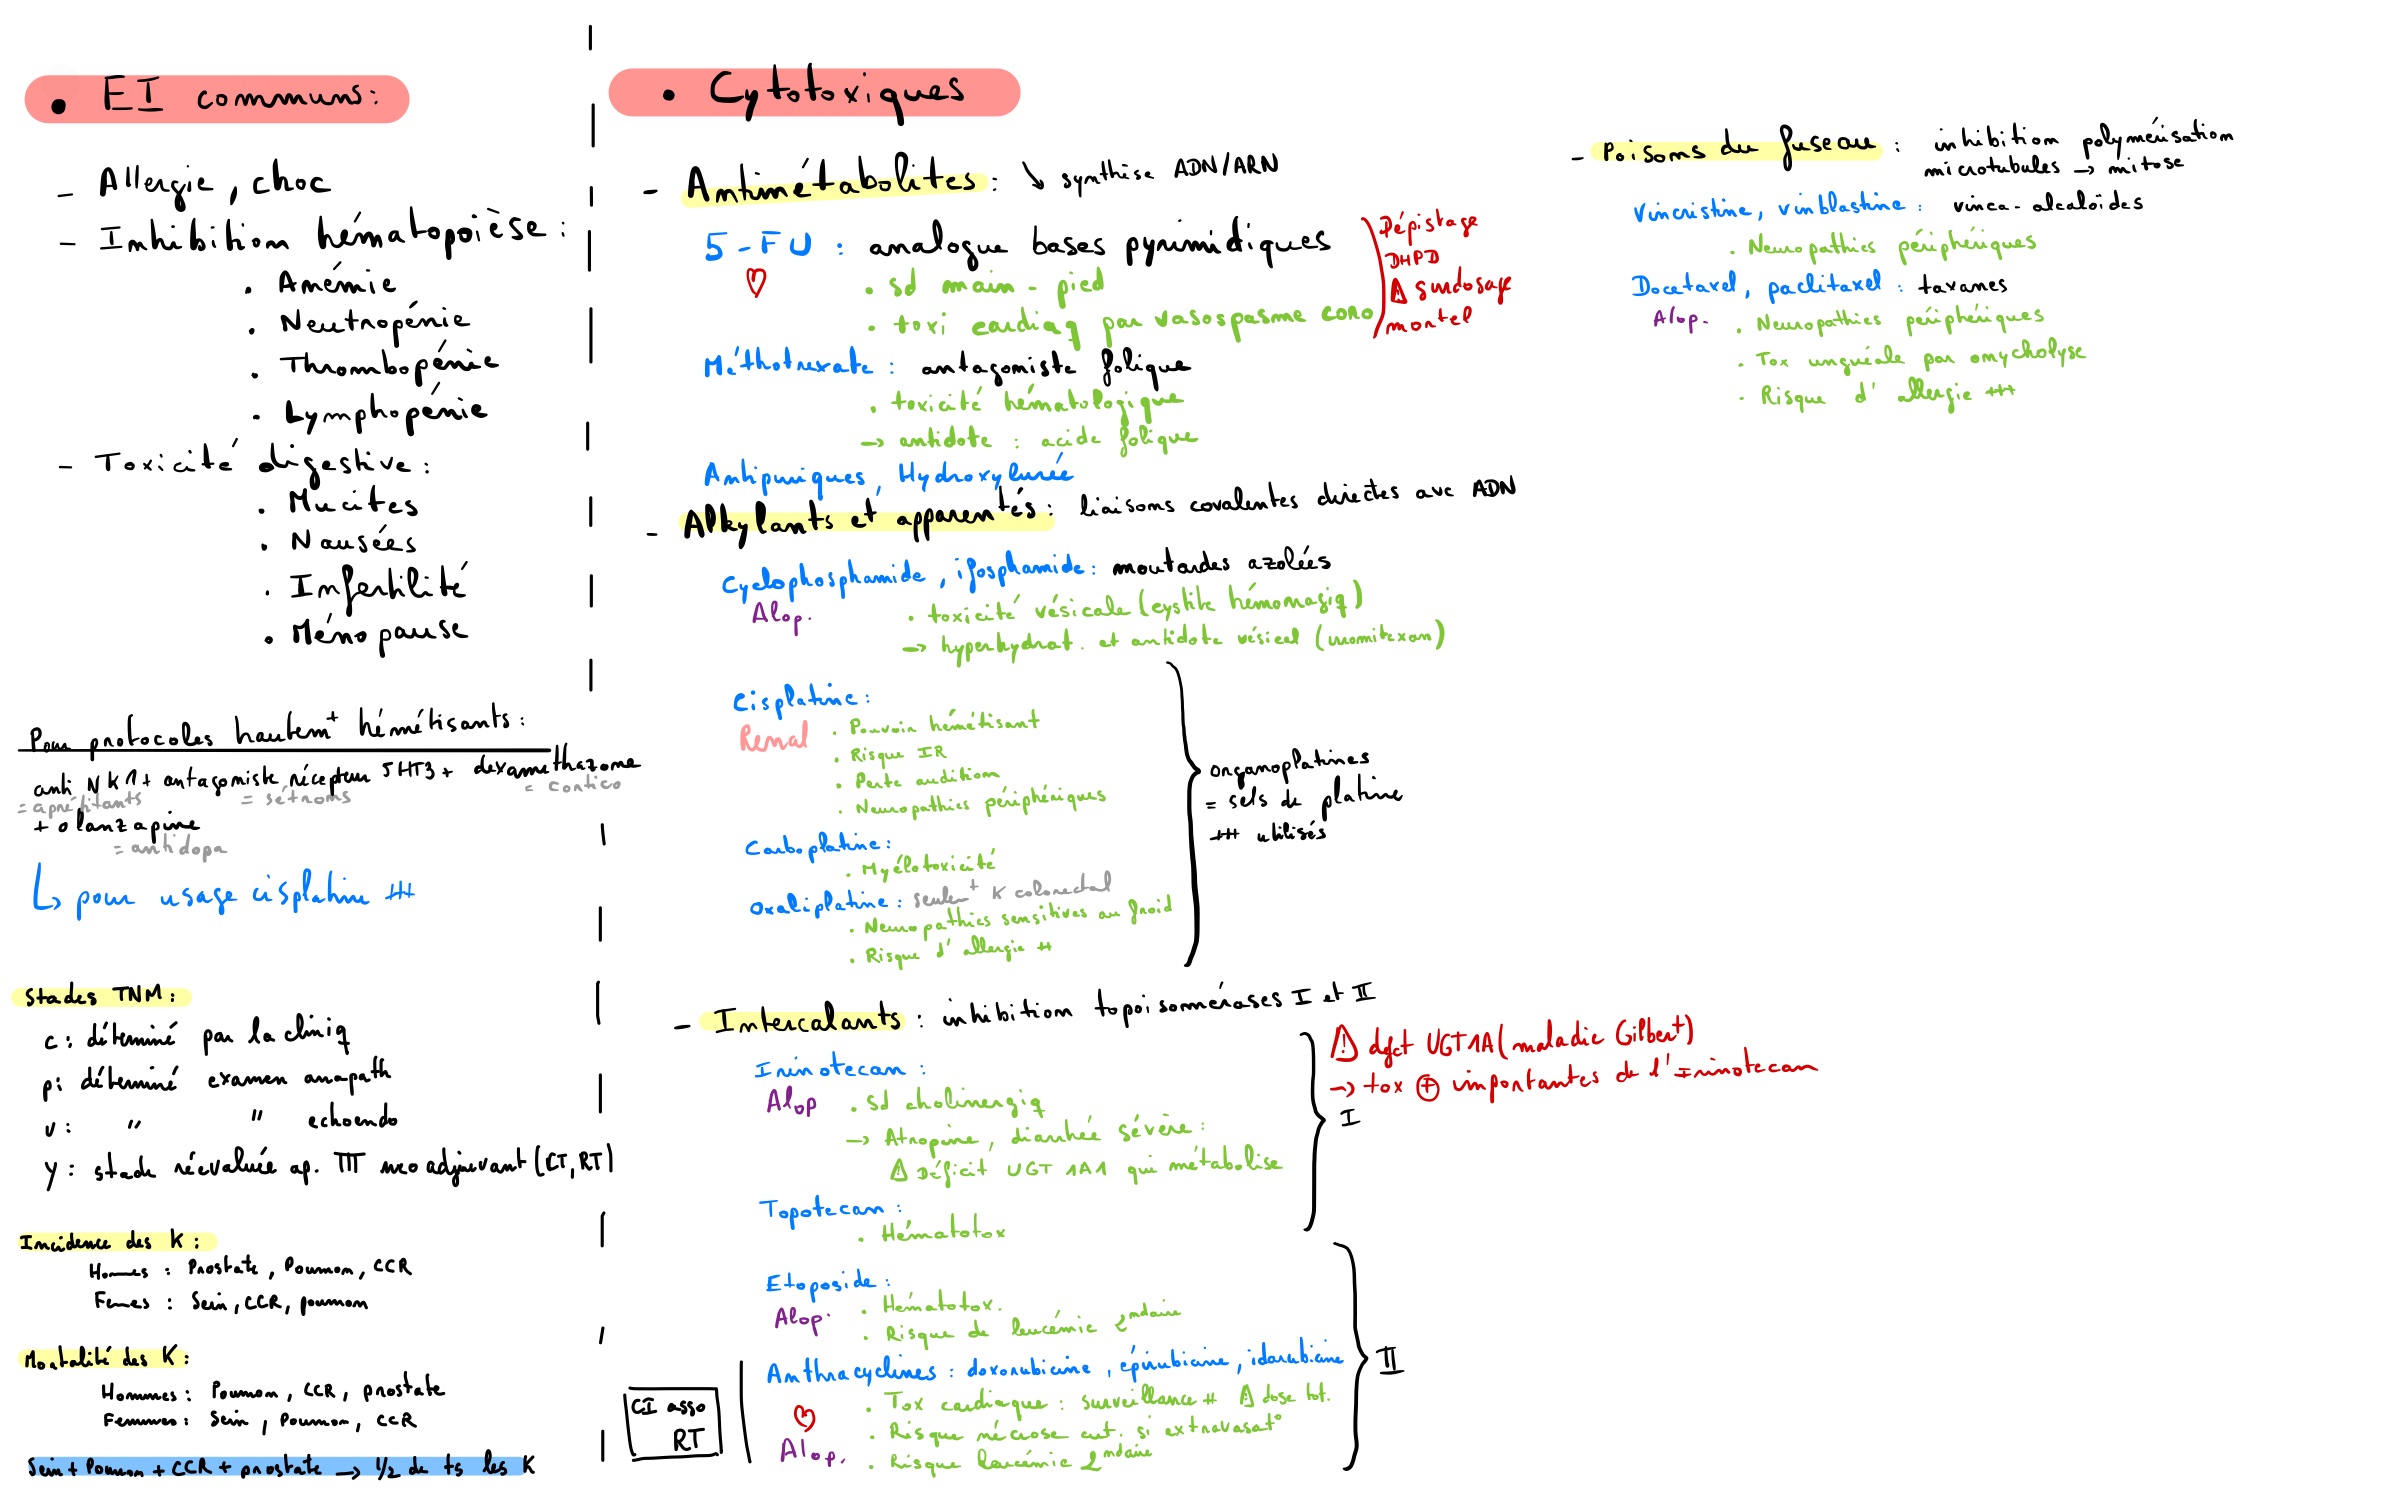 • EI communs:
- Allergie, choc
- Inhibition hématopoièse:
• Anémie
• Neutropénie
• Thrombopénie
• Lymphopénie
- Toxicité digestive:
• Mucites
• Nausées
• Infertilité
• Ménopause
Pour protocoles hautem+ hémétisants:
anti NK1 + antagoniste récepteur 5HT3 + dexaméthazone
= aprépitants = sétrons = cortico
+ olanzapine
= antidopa
↳ pour usage cisplatine +++
Stades TNM:
c: déterminé par la cliniq
p: déterminé examen anapath
u: " " echoendo
y: stade réévaluée ap. TTT neoadjuvant (CT, RT)
Incidence des K:
Hommes : Prostate, Poumon, CCR
Femes : Sein, CCR, poumon
Mortalité des K:
Hommes: Poumon, CCR, prostate
Femmes: Sein, Poumon, CCR
Sein + Poumon + CCR + prostate → 1/2 de ts les K
• Cytotoxiques
- Antimétabolites: ↘ synthèse ADN/ARN
5-FU : analogue bases pyrimidiques
♡ • sd main-pied
• toxi cardiaq par vasospasme coro
Dépistage
DHPD
⚠ surdosage
mortel
Méthotrexate : antagoniste folique
• toxicité hématologique
→ antidote : acide folique
Antipuriques, Hydroxylurée
- Alkylants et apparentés: liaisons covalentes directes avc ADN
Cyclophosphamide, ifosphamide: moutardes azolées
Alop. • toxicité vésicale (cystite hémorragiq)
→ hyperhydrat. et antidote vésical (uromitexan)
Cisplatine:
Renal • Pouvoir hémétisant
• Risque IR
• Perte audition
• Neuropathies périphériques
Carboplatine:
• Myélotoxicité
Oxaliplatine: seulem+ K colorectal
• Neuropathies sensitives au froid
• Risque d'allergie ++
organoplatines
= sels de platine
+++ utilisés
- Intercalants : inhibition topoisomérases I et II
Irinotecan :
Alop • Sd cholinergiq
→ Atropine, diarrhée sévère:
⚠ Déficit UGT 1A1 qui métabolise
Topotecan :
• Hématotox
I
⚠ dfct UGT1A (maladie Gilbert)
→ tox ⊕ importantes de l'Irinotecan
Etoposide:
Alop. • Hématotox.
• Risque de leucémie 2ndaire
Anthracyclines : doxorubicine, épirubicine, idarubicine
• Tox cardiaque : surveillance ++ ⚠ dose tot.
♡ • Risque nécrose cut. si extravasat°
Alop. • Risque leucémie 2ndaire
II
CI asso
RT
- Poisons du fuseau : inhibition polymérisation
microtubules → mitose
Vincristine, vinblastine : vinca-alcaloïdes
• Neuropathies périphériques
Docetaxel, paclitaxel : taxanes
Alop. • Neuropathies périphériques
• Tox unguéale par onycholyse
• Risque d'allergie +++